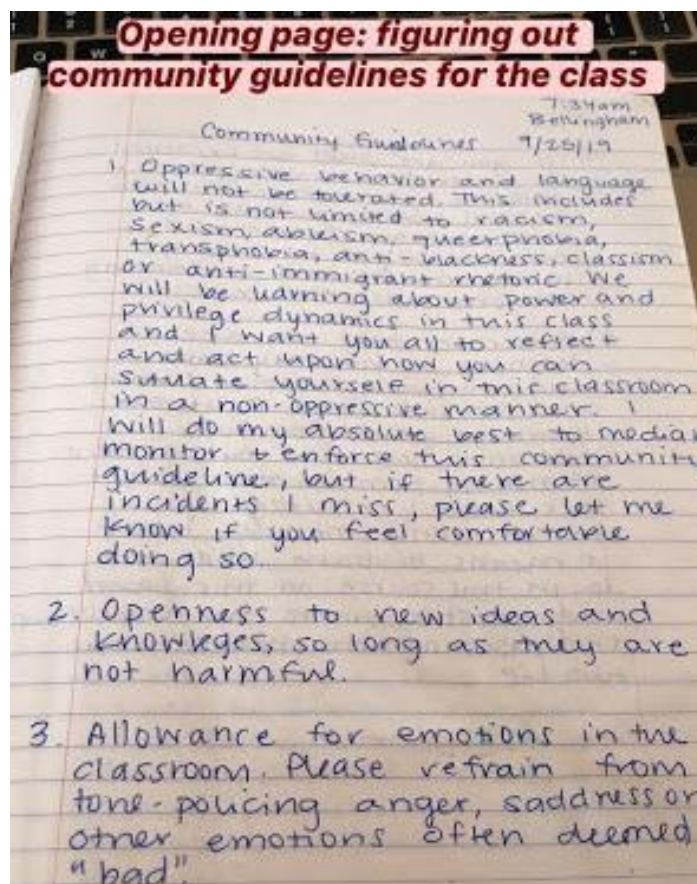 Opening page: figuring out
community guidelines for the class
7:34am
Bellingham
Community Guidelines 9/25/19
1. Oppressive behavior and language
will not be tolerated. This includes
but is not limited to racism,
sexism, ableism, queerphobia,
transphobia, anti-blackness, classism
or anti-immigrant rhetoric. We
will be learning about power and
privilege dynamics in this class
and I want you all to reflect
and act upon how you can
situate yourself in this classroom
in a non-oppressive manner. I
will do my absolute best to mediat
monitor & enforce this communit
guideline, but if there are
incidents I miss, please let me
know if you feel comfortable
doing so.
2. Openness to new ideas and
knowleges, so long as they are
not harmful.
3. Allowance for emotions in the
classroom. Please refrain from
tone-policing anger, saddness or
other emotions often deemed
"bad".